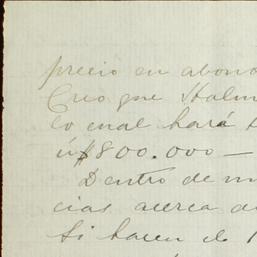 precio en abono
Creo que
lo cual hará
$800.000 —
Dentro de
cias acerca de
Si hacen